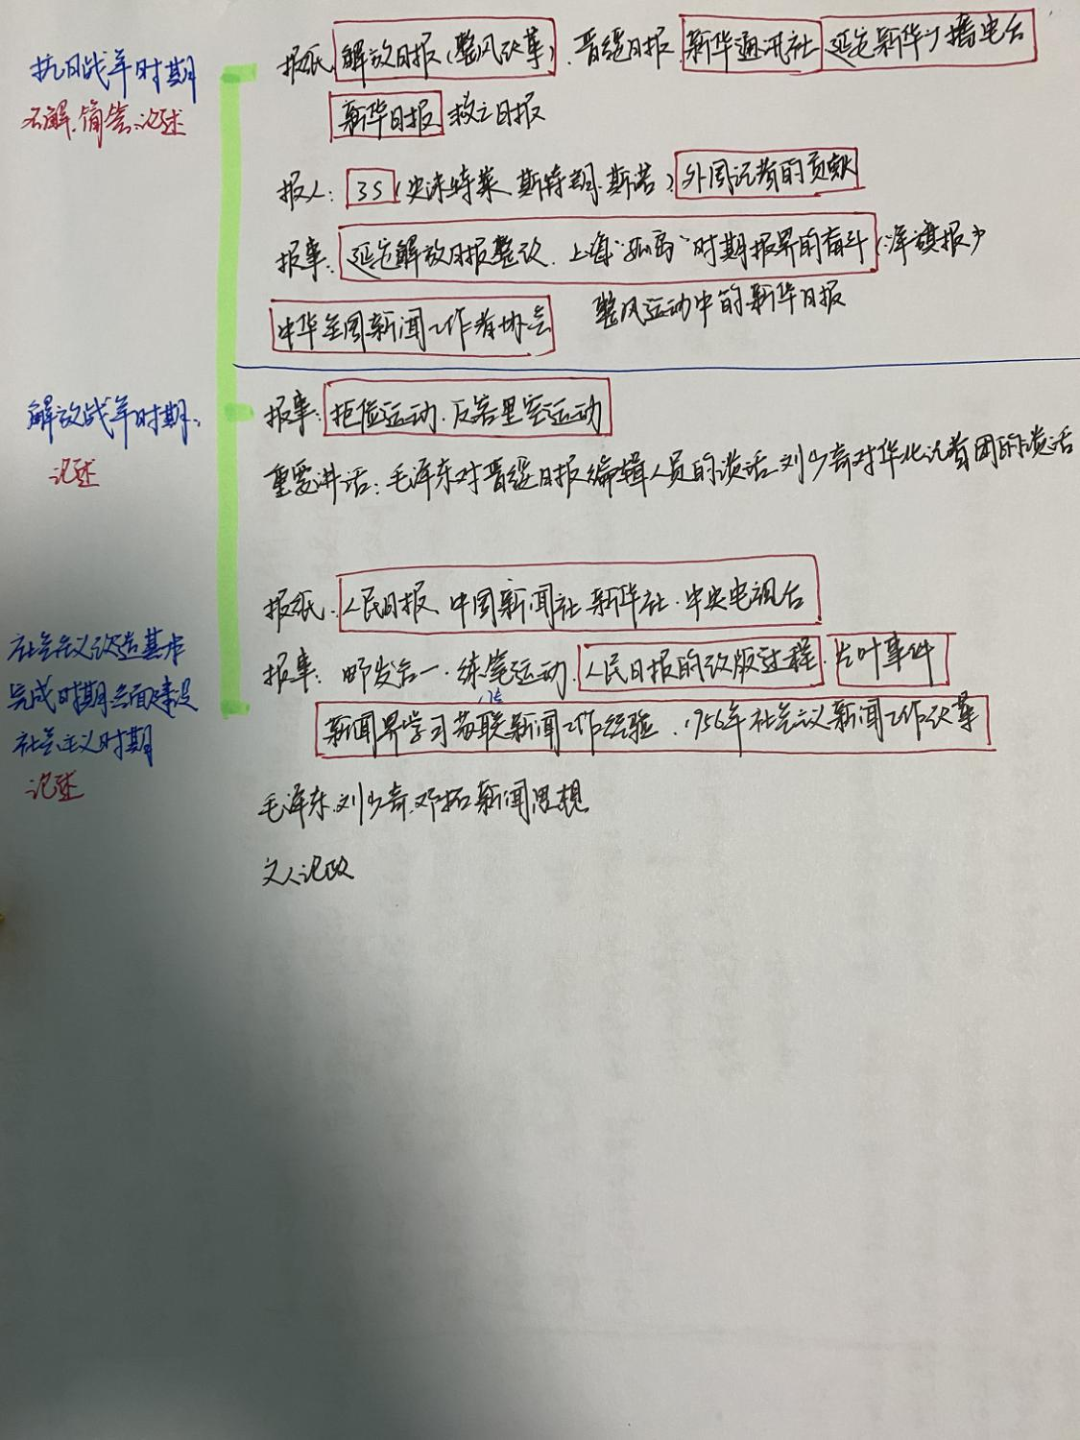 抗日战争时期
名解、简答、论述
报纸: 解放日报(整风改革)、晋绥日报 新华通讯社 延安新华广播电台
新华日报 救亡日报
报人: 3S(史沫特莱、斯特朗、斯诺) 外国记者的贡献
报事: 延安解放日报整改、上海"孤岛"时期报界的奋斗(洋旗报)
中华全国新闻工作者协会 整风运动中的新华日报
解放战争时期:
论述
报事: 拒检运动、反客里空运动
重要讲话: 毛泽东对晋绥日报编辑人员的谈话、刘少奇对华北记者团的谈话
报纸: 人民日报、中国新闻社 新华社、中央电视台
社会主义改造基本
完成时期全面建设
社会主义时期
论述
报事: 邮发合一、练笔运动、人民日报的改版过程、片叶事件
新闻界学习苏联新闻工作经验、1956年社会主义新闻工作改革
毛泽东、刘少奇、邓拓新闻思想
文人论政